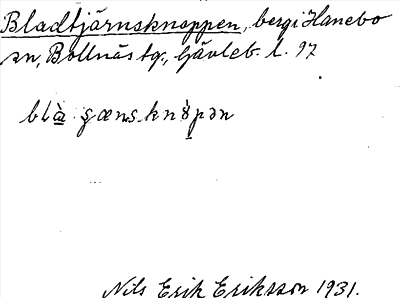 Bladtjärnsknoppen, berg i Hanebo
sn, Bollnäs tg., Gävleb. l. 97
blà̱ ꞩæns-knò̱pən
Nils Erik Eriksson 1931.